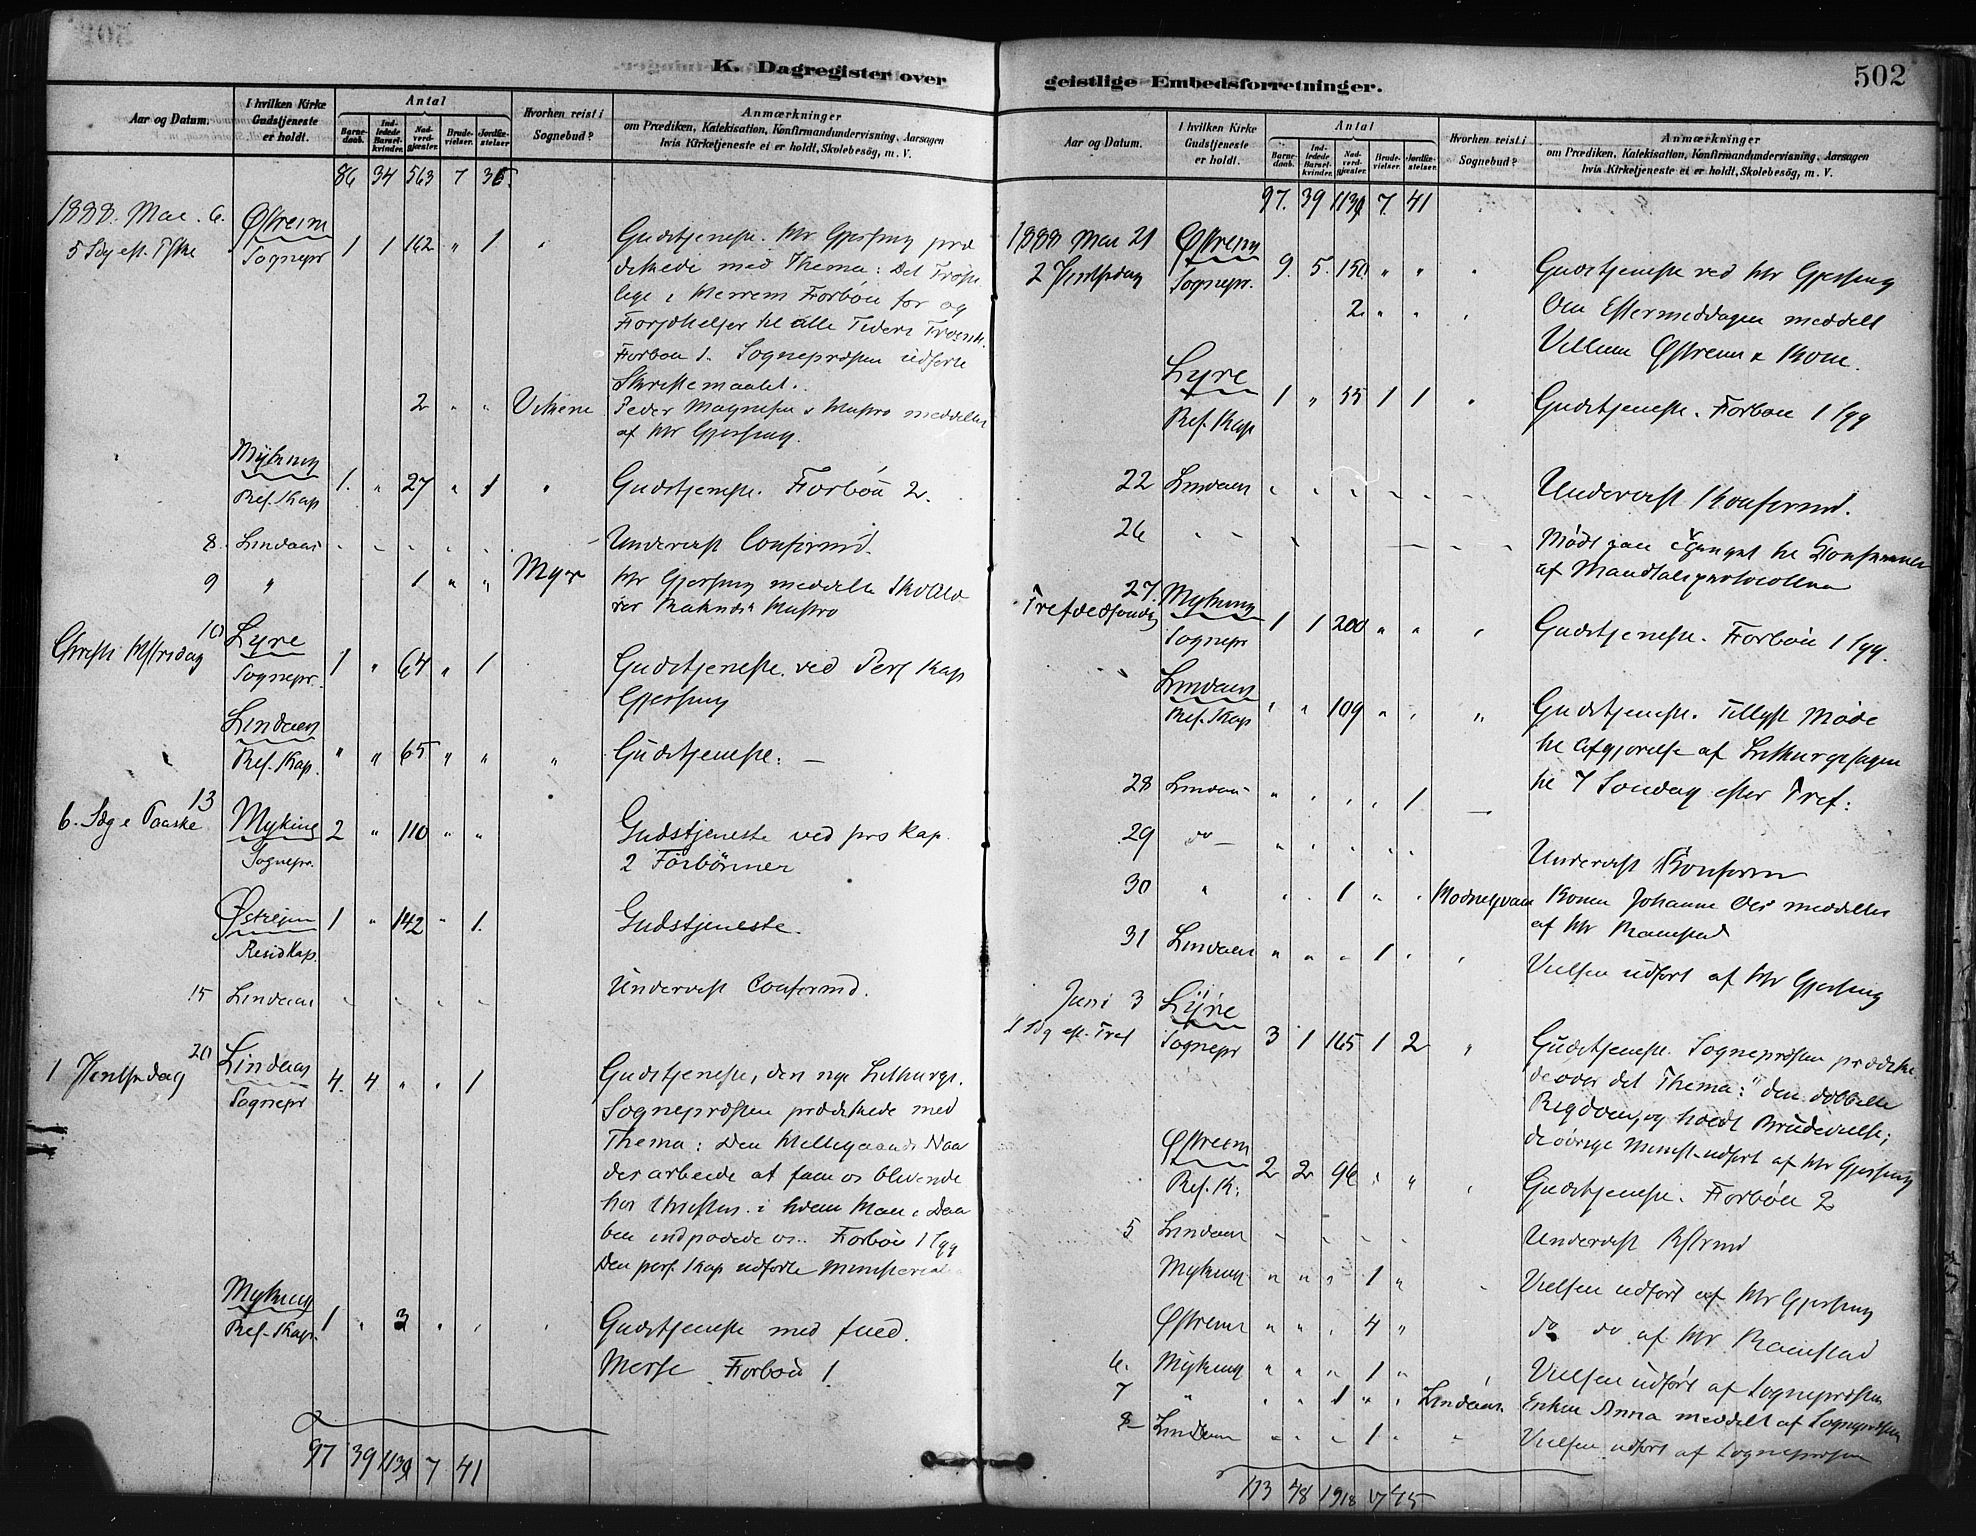 K. Dagregister over
Aar og Datum.
I hvilken Kirke Gudstjeneste er holdt.
Antal
Barnedaab.
Indledede Barselkvinder.
Nadverdgjæster.
Brudevielser.
Jordfæstelser
Hvorhen reist i Sognebud?
Anmærkninger
om Prædiken, Katekisation, Konfirmandundervisning, Aarsagen
hvis Kirketjeneste ei er holdt, Skolebesög, m. V.
86 34 563 7 36
1888. Mai. 6. Østreim
5 Sdg eft. Pske Sognepr 1 1 162 " 1 Gudstjeneste. Hr Gjersing præ
dikede med Thema: Det Trøste
lige i Herrens Forbøn for og
til alle Tiders
Forbøn 1. Sognepræsten udførte
Skriftemaalet.
2 " " Vikene Peder Magnesen & Hustro meddeltes
af Hr Gjersing.
Myking
Res. Kap 1. " 27 " 1 " Gudstjeneste. Forbøn 2.
8. Lindaas Underviist Confirmd.
9 " 1 " " Myr Hr Gjersing meddelte
Hustro
10 Lyre
Christi Hfrtsdag Sognepr. 1 " 64 " 1 Gudstjeneste ved Pers Kap
Gjersing
Lindaas
Res. Kap. " " 65 " " " Gudstjeneste. —
13
6. Sdg e Paaske Myking 2 " 110 " " Gudstjeneste ved pers Kap.
Sognepr. 2 Forbønner
Østreim 1 " 142 " 1. Gudstjeneste.
Resid Kap.
15 Lindaas Underviist Confirmd.
20 Lindaas
1 Pentsedag Sognepr 4. 4 " " 1 Gudstjeneste, den nye Lithurgi.
Sognepræsten prædikede med
Thema: Den Helligaands Naa
des arbeide at faae os blivende
hos Christus i hvem Han i Daa
ben indpodede os. Forbøn 1 Igg
Den pers. Kap udførte Ministerial
Myking
Res. Kap. 1 " 3 " " " Gudstjeneste med
Messe Forbøn 1.
97 39 1139 7 41
geistlige Embedsforretninger.
502
Aar og Datum.
I hvilken Kirke Gudstjeneste er holdt.
Antal
Barnedaab.
Indledede Barselkvinder.
Nadverdgjæster.
Brudevielser.
Jordfæstelser.
Hvorhen reist i Sognebud?
Anmærkninger
om Prædiken, Katekisation, Konfirmandundervisning, Aarsagen
hvis Kirketjeneste ei er holdt, Skolebesög, m. V.
97. 39 1139 7. 41
1888 Mai 21 Østreim
2 Pentsedag Sognepr. 9. 5. 150 " " " Gudstjeneste ved Hr Gjersing
2 " " " Om Eftermeddagen meddelt
Villum Østreim & Kone.
Lyre
Res. Kap 1 " 55 1 1 " Gudstjeneste. Forbøn 1 Igg
22 Lindaas Underviist Konfirmd.
26 Mødt paa til
af Mandtalsprotocollen
27. Myking
Trefdedsondg Sognepr 1 1 200 " " " Gudstjeneste. Forbøn 1 Igg.
Lindaas
Res. Kap " " 109 " " " Gudstjeneste. Tillyst Møde
til Afgjørelse af Lithurgisagen
28 Lindaas " " " " 1 — til 7 Søndag efter Tref:
29 do — " " " " " Underviist Konfirm
30 " " " 1 " " Konen Johanne meddeltes
af Hr Ramstad
31 Lindaas " " " 1 " " Vielsen udført af Hr Gjersing
Juni 3 Lyre
1 Sdg eft. Tref Sognepr 3 1 165 1 2 " Gudstjeneste. Sognepræsten prædike
de over det Thema: "den dobbelte
Rigdom, og holdt Brudevielse;
de øvrige Minist. udført af Hr Gjersing
Østreim
Res. K. 2 2 96 " " " Gudstjeneste. Forbøn 2
5 Lindaas Underviist
Myking " " " 1 " " Vielsen udført af Hr Gjersing
Østreim " " " 4 " do do af Hr Ramstad
6. Myking " " " 1 " Vielsen udført af Sognepræsten
7 " " " 1 " " Lindaas Enken Anna meddelt af Sognepræsten
8 Lindaas " " " 1 " " Vielsen udført af Sognepræsten
113 48 1918 17 45